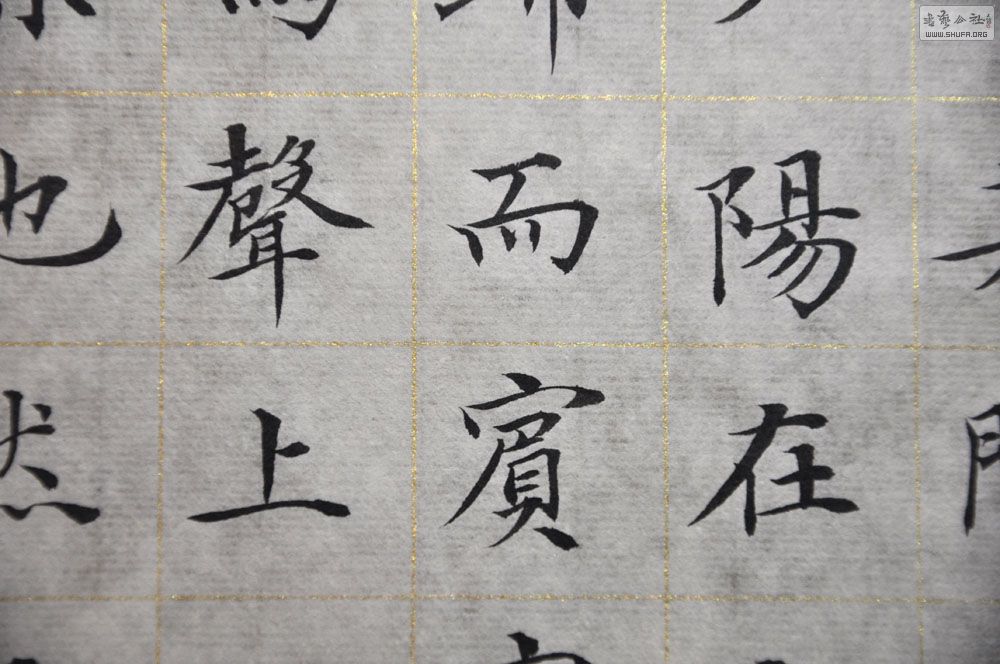 陽在
而賓
聲上
也然
書藝公社
WWW.SHUFA.ORG